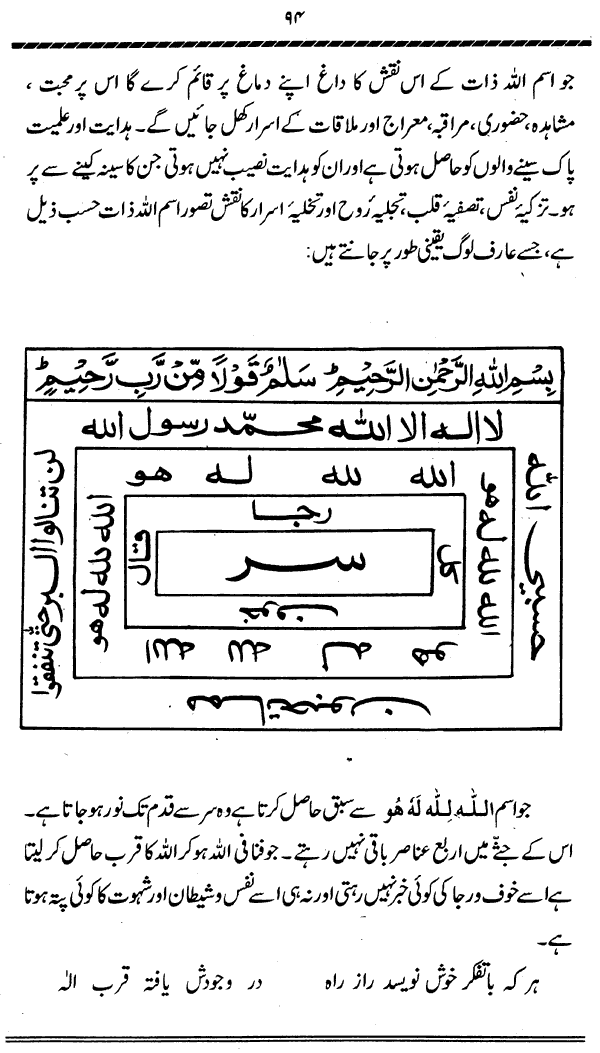 ۹۴
جو اسم اللہ ذات کے اس نقش کا داغ اپنے دماغ پر قائم کرے گا اس پر محبت ،
مشاہدہ، حضوری، مراقبہ، معراج اور ملاقات کے اسرار کھل جائیں گے۔ ہدایت اور علمیت
پاک سینے والوں کو حاصل ہوتی ہے اور ان کو ہدایت نصیب نہیں ہوتی جن کا سینہ کینے سے پر
ہو۔ تزکیۂ نفس، تصفیۂ قلب، تجلیۂ روح اور تخلیۂ اسرار کا نقش تصور اسم اللہ ذات حسب ذیل
ہے، جسے عارف لوگ یقینی طور پر جانتے ہیں:
بِسْمِ اللهِ الرَّحْمٰنِ الرَّحِيْمِ سَلٰمٌ قَوْلًا مِّنْ رَّبٍّ رَّحِيْمٍ
لا اله الا الله محمد رسول الله
حسبی الله
لن تنالوا البر حتی تنفقوا
مما تحبون
الله لله له هو
الله لله له هو
الله لله له هو
الله لله له هو
رجا
کل
قال
خوف
سر
جو اسم اللّٰه لِلّٰه لَهٗ هُو سے سبق حاصل کرتا ہے وہ سر سے قدم تک نور ہو جاتا ہے۔
اس کے جثّے میں اربع عناصر باقی نہیں رہتے۔ جو فنا فی اللہ ہو کر اللہ کا قرب حاصل کر لیتا
ہے اسے خوف و رجا کی کوئی خبر نہیں رہتی اور نہ ہی اسے نفس و شیطان اور شہوت کا کوئی پتہ ہوتا
ہے۔
ہر کہ باتفکر خوش نویسد راز راہ در وجودش یافتہ قرب الٰہ